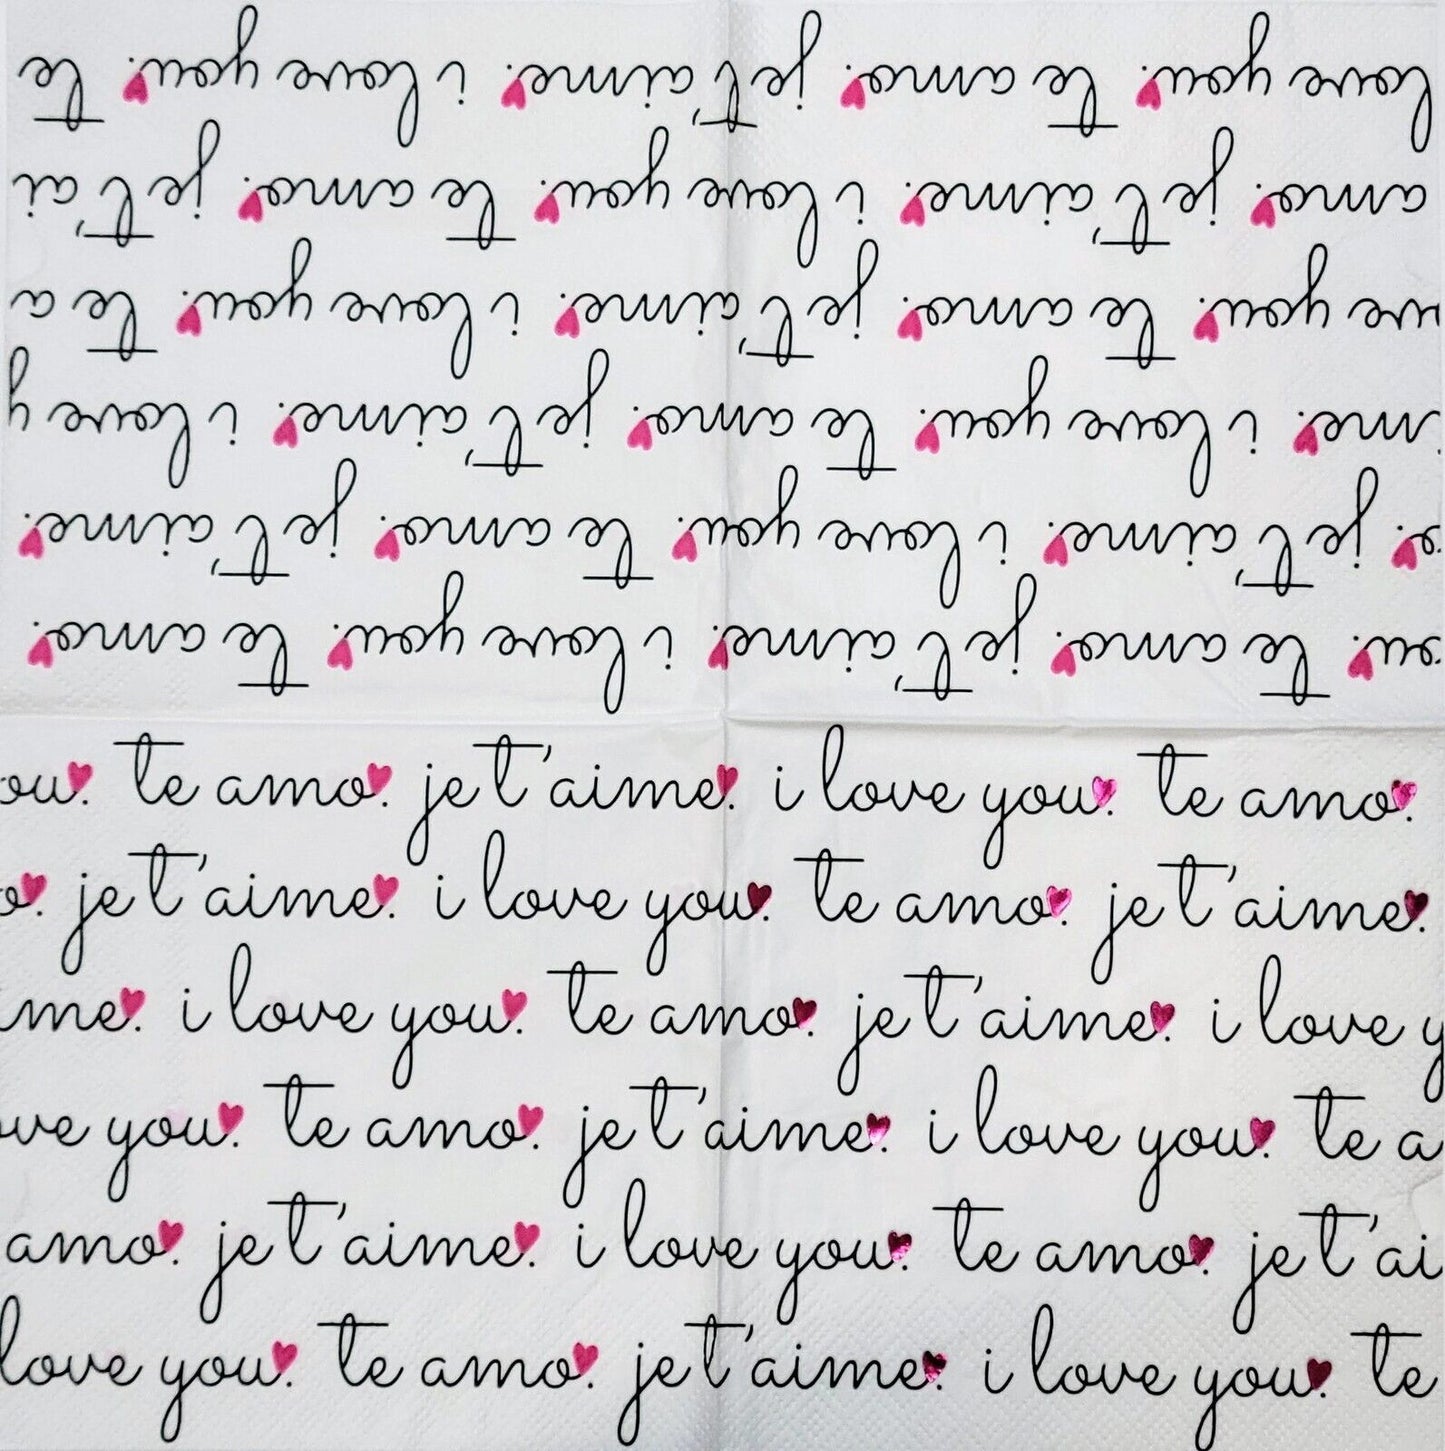 ou. te amo. je t'aime. i love you. te amo.
o. je t'aime. i love you. te amo. je t'aime.
me. i love you. te amo. je t'aime. i love y
ve you. te amo. je t'aime. i love you. te a
amo. je t'aime. i love you. te amo. je t'ai
love you. te amo. je t'aime. i love you. te
ou. te amo. je t'aime. i love you. te amo.
o. je t'aime. i love you. te amo. je t'aime.
me. i love you. te amo. je t'aime. i love y
ve you. te amo. je t'aime. i love you. te a
amo. je t'aime. i love you. te amo. je t'ai
love you. te amo. je t'aime. i love you. te